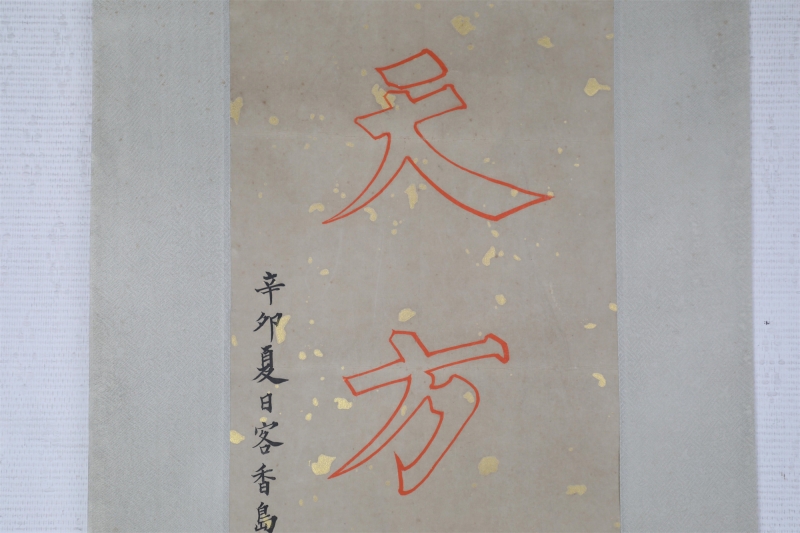 天方
辛卯夏日客香島